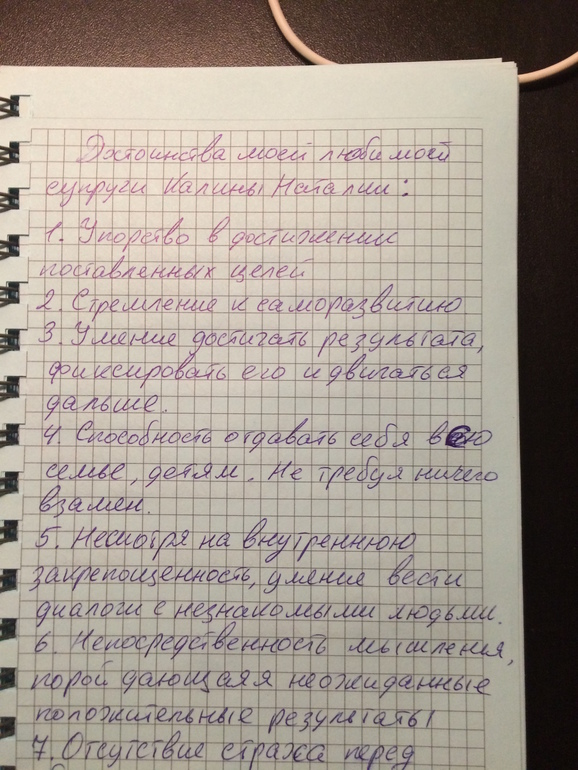 Достоинства моей любимой
супруги Калины Наталии:
1. Упорство в достижении
поставленных целей
2. Стремление к саморазвитию
3. Умение достигать результата,
фиксировать его и двигаться
дальше.
4. Способность отдавать себя всю
семье, детям. Не требуя ничего
взамен.
5. Несмотря на внутреннюю
закрепощенность, умение вести
диалоги с незнакомыми людьми.
6. Непосредственность мышления,
порой дающаяя неожиданные
положительные результаты
7. Отсутствие страха перед